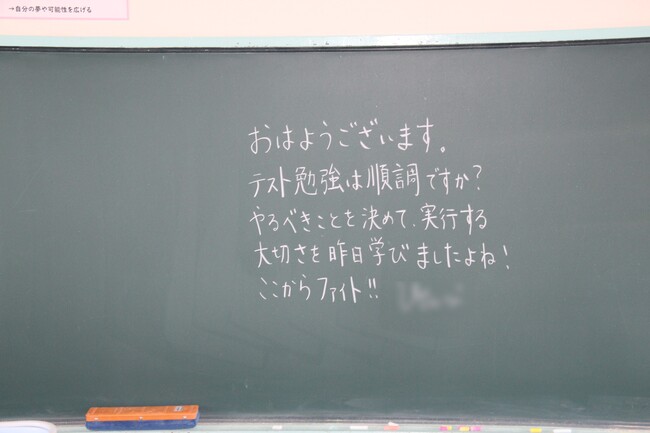 →自分の夢や可能性を広げる
おはようございます。
テスト勉強は順調ですか?
やるべきことを決めて、実行する
大切さを昨日学びましたよね!
ここからファイト!!